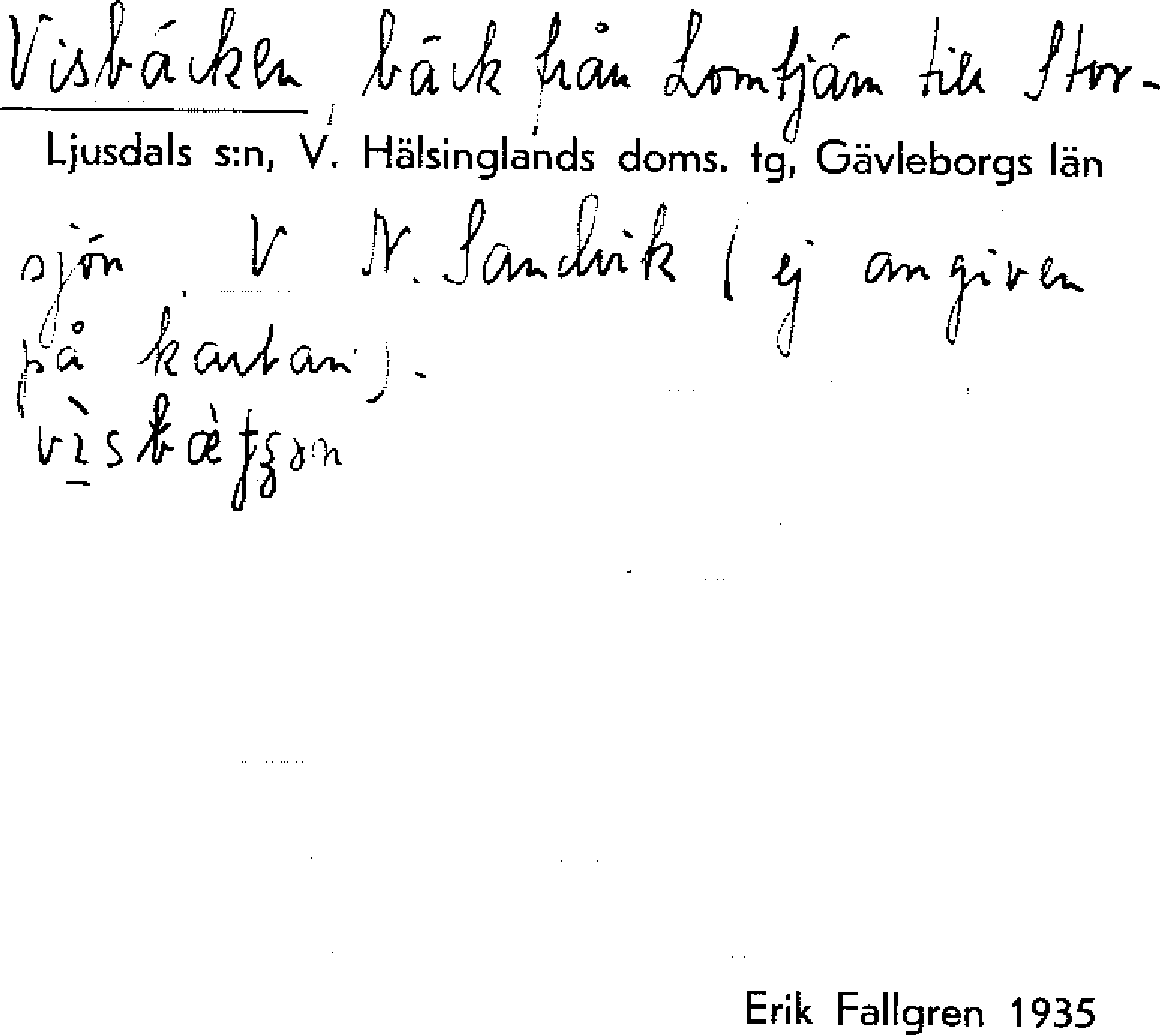 Visbäcken, bäck från Lomtjärn till Stor-
Ljusdals s:n, V. Hälsinglands doms. tg, Gävleborgs län
sjön V N. Sandvik (ej angiven
på kartan).
Erik Fallgren 1935